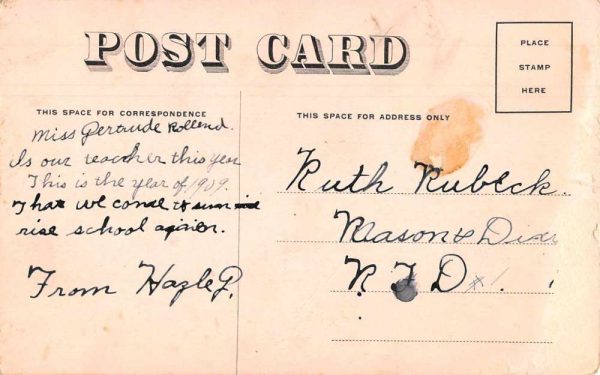 POST CARD
PLACE
STAMP
HERE
THIS SPACE FOR CORRESPONDENCE
THIS SPACE FOR ADDRESS ONLY
Miss Gertrude Rollend.
Is our teacher this year
This is the year of 1909.
That we come to sun
rise school
From Hazle P.
Ruth Rubeck.
Mason & Dixon
R F D